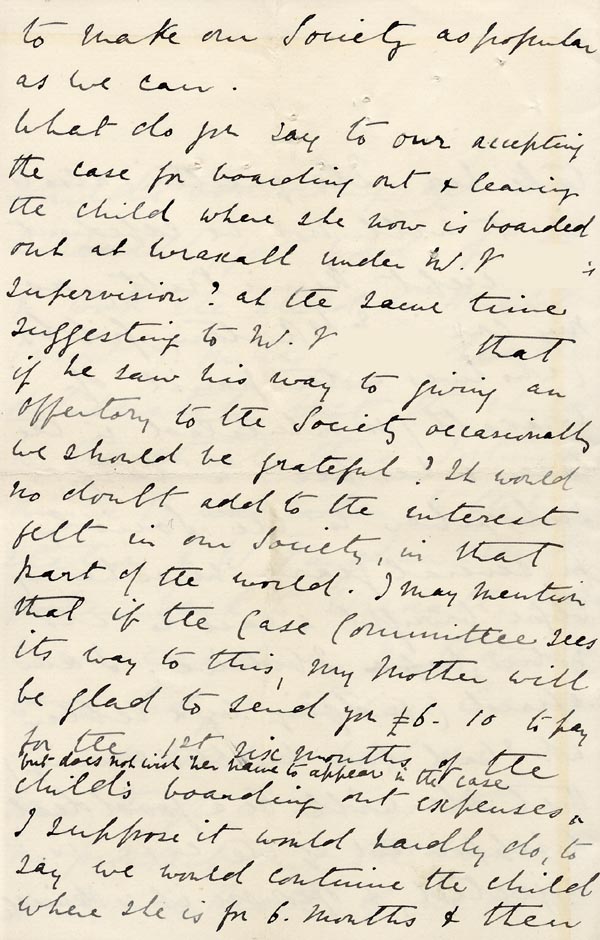 to make our Society as popular
as we can.
What do you say to our accepting
the case for boarding out & leaving
the child where she now is boarded
out at Wraxall under Mr. V 's
supervision? at the same time
suggesting to Mr. V that
if he saw his way to giving an
offertory to the Society occasionally
we should be grateful? It would
no doubt add to the interest
felt in our Society, in that
part of the world. I may mention
that if the Case Committee sees
its way to this, my Mother will
be glad to send you £6. 10 to pay
for the 1st six months of the
but does not wish her name to appear in the case
child's boarding out expenses.
I suppose it would hardly do, to
say we would continue the child
where she is for 6. months & then